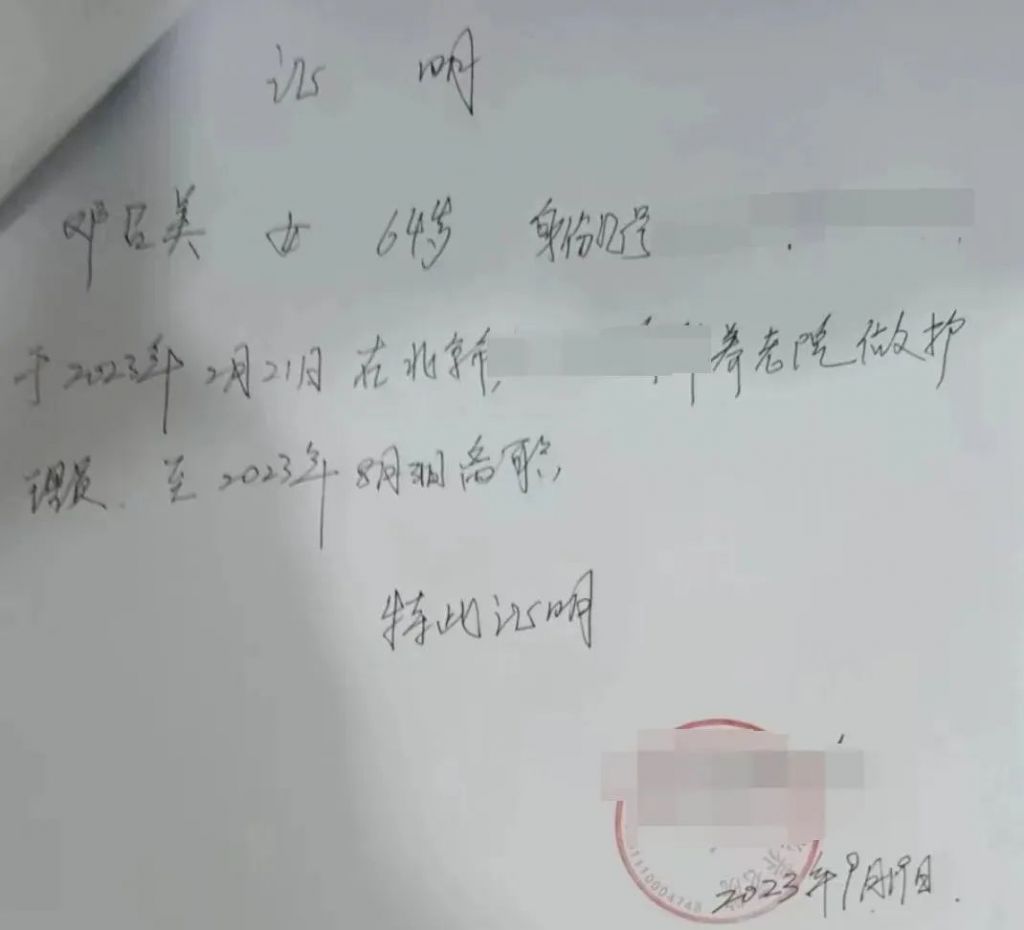 证明
邓吕美 女 64岁 身份证号
于2023年2月21日 在北京市 养老院做护
理员. 至2023年8月 离职,
特此证明
1110004748
2023年9月19日.